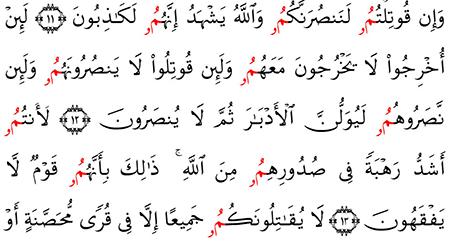 وَإِن قُوتِلْتُمُۥ لَنَنصُرَنَّكُمُۥ وَٱللَّهُ يَشْهَدُ إِنَّهُمُۥ لَكَـٰذِبُونَ ۝١١ لَئِنْ
أُخْرِجُوا۟ لَا يَخْرُجُونَ مَعَهُمُۥ وَلَئِن قُوتِلُوا۟ لَا يَنصُرُونَهُمُۥ وَلَئِن
نَّصَرُوهُمُۥ لَيُوَلُّنَّ ٱلْأَدْبَـٰرَ ثُمَّ لَا يُنصَرُونَ ۝١٢ لَأَنتُمُۥ
أَشَدُّ رَهْبَةً فِى صُدُورِهِمُۥ مِنَ ٱللَّهِ ۚ ذَٰلِكَ بِأَنَّهُمُۥ قَوْمٌ لَّا
يَفْقَهُونَ ۝١٣ لَا يُقَـٰتِلُونَكُمُۥ جَمِيعًا إِلَّا فِى قُرًى مُّحَصَّنَةٍ أَوْ